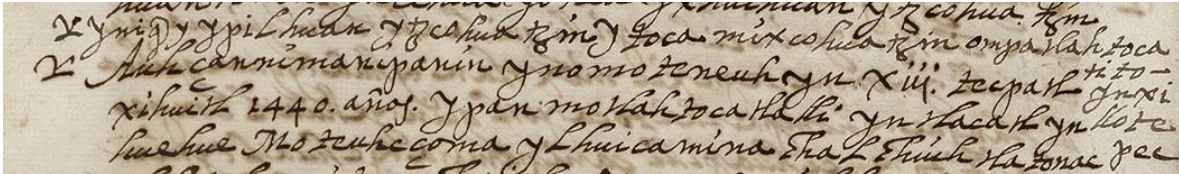 yniqỹ ypilhuan ytzcohuatzin) ytoca mixcohuatzin ompa tlahtoca
Auh çan niman ipanin ynomoteneuh yn xiij. tecpatl
xihuitl 1440. años. ypan motlahtocatlalli yn tlacatl yn
huehue Moteuhcçoma ylhuicamina chalchiuhtlatonac
ti to-
ynxi
llote
pec